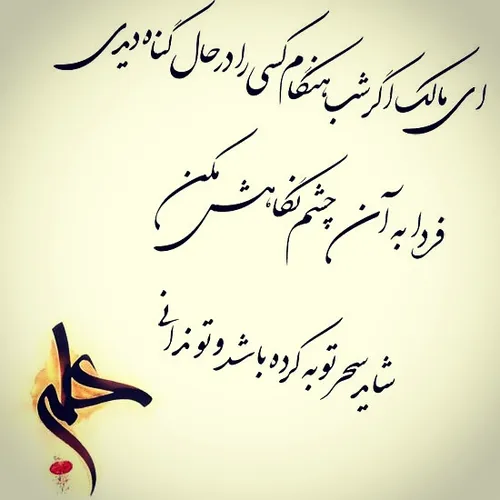 ای مالک اگر شب هنگام کسی را در حال گناه دیدی
فردا به آن چشم نگاهش مکن
شاید سحر توبه کرده باشد و تو ندانی
علی